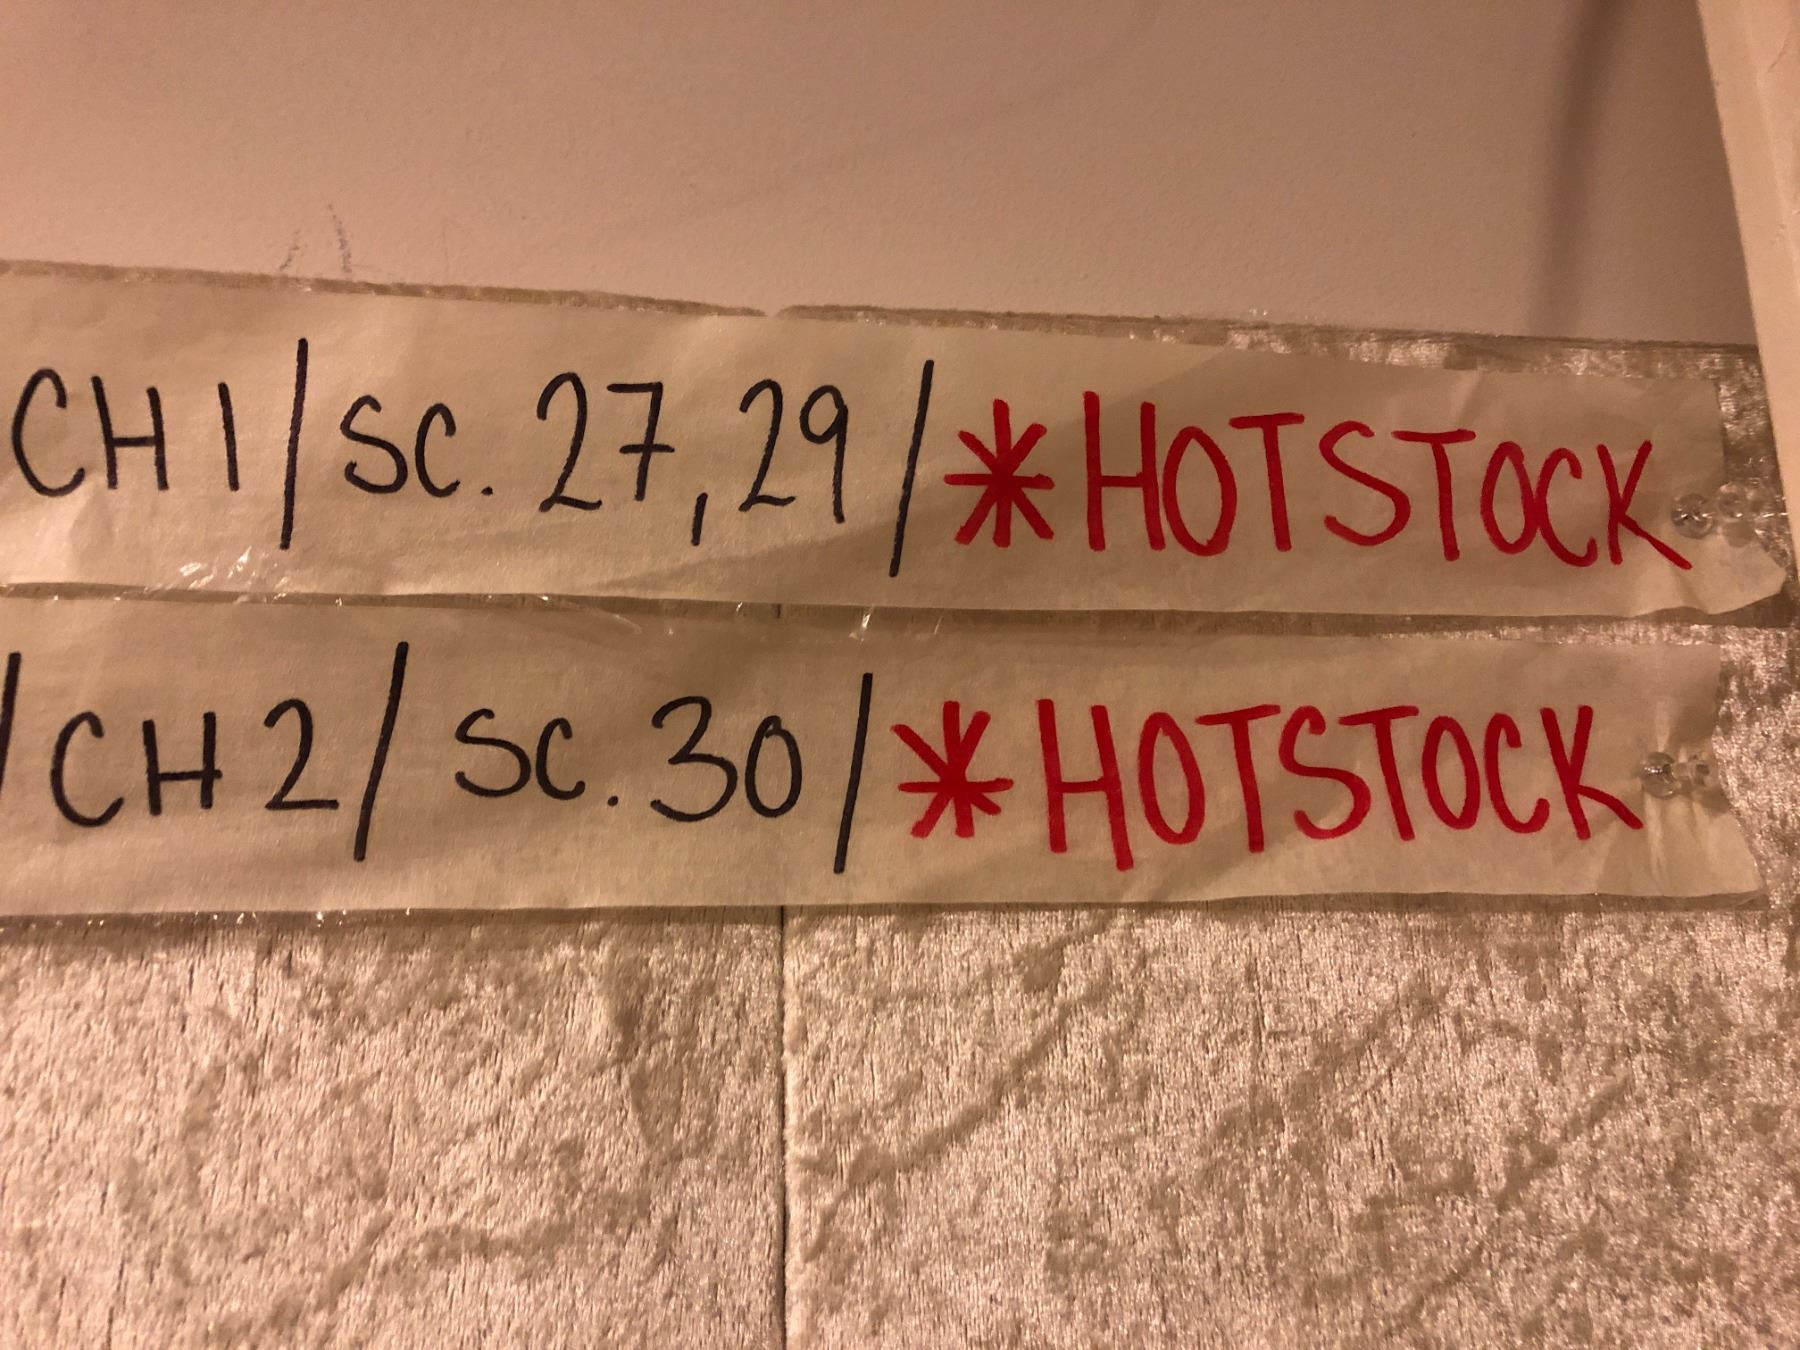 CH 1 / SC. 27, 29 / *HOTSTOCK
/ CH 2 / SC. 30 / *HOTSTOCK